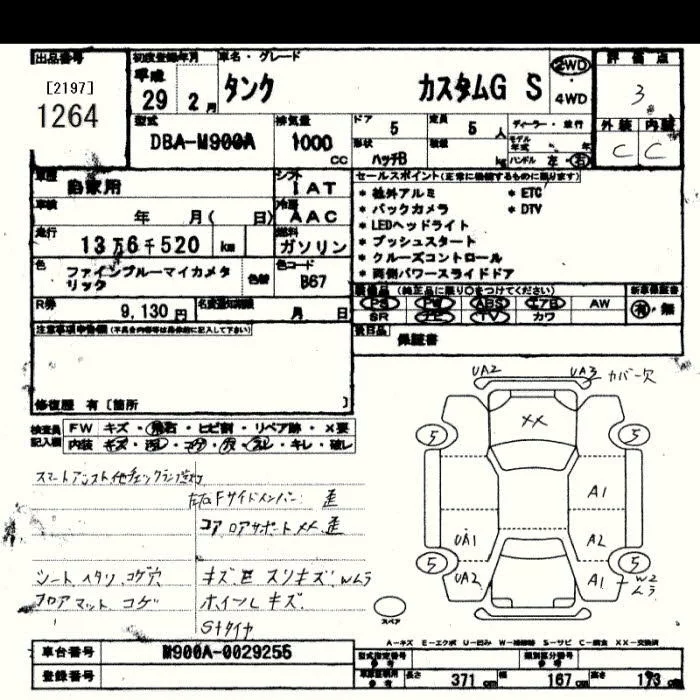 出品番号
[2197]
1264
初度登録年月
平成
29 2 月
車名・グレード
タンク カスタムG S
2WD
・
4WD
評価点
3
外装 内装
C C
型式
DBA-M900A
排気量
1000
CC
ドア 5
定員 5 人
形状
ハッチB
積載
kg
ディーラー・並行
モデル年式 年
ハンドル 左・右
車歴
自家用
シフト
IAT
車検
年 月( 日)
冷房
AAC
走行
13万6千520 km
燃料
ガソリン
色
ファインブルーマイカメタリック
色替
色コード
B67
R券
9,130円
名変通知期限
月 日
セールスポイント(正常に機能するものに限ります)
* 社外アルミ * ETC
* バックカメラ * DTV
* LEDヘッドライト
* プッシュスタート
* クルーズコントロール
* 両側パワースライドドア
装備品 (純正品に限り○をつけてください)
PS PW ABS エアB AW
SR TV カワ
新車保証書
有・無
後日品
保証書
注意事項申告欄(不具合内容等は具体的に記入して下さい)
修復歴 有〔箇所 〕
検査員記入欄
FW キズ・飛石・ヒビ割・リペア跡・X要
内装 キズ・汚レ・コゲ・穴・スレ・キレ・破レ
スマートアシスト他チェックランプ点灯
左右Fサイドメンバー 歪
コア ロアサポートXX、歪
シート ヘタリ、コゲ穴
フロアマット コゲ
キズ、E スリキズ、Wムラ
ホイールキズ
Sタイヤ
UA2 UA3 カバー欠
XX
5 5
A1
UA1 A2
5 5
UA2 A1 W2
ムラ
スペア
A-キズ E-エクボ U-凹み W-補修跡 S-サビ C-腐食 XX-交換済
車台番号 M900A-0029255
登録番号
型式指定番号
参考
類別区分番号
参考
長さ 371 cm 幅 167 cm 高さ 173 cm